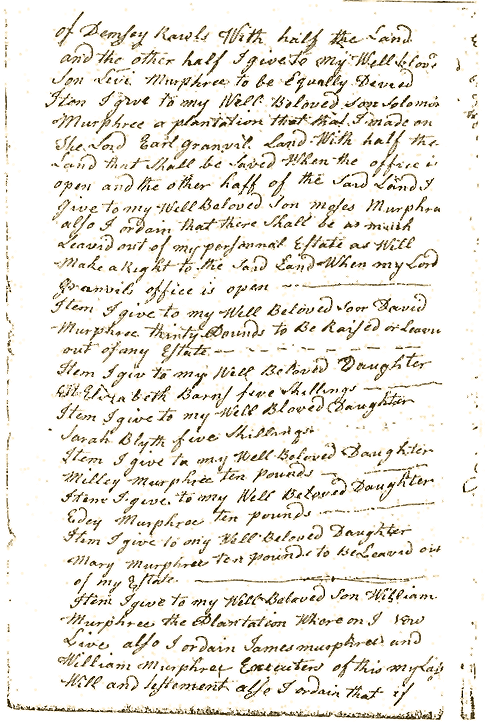 of Demsey Rawls With half the Land
and the other half I give to my Well belove
Son Levi Murphree to be Equally Devied
Item I give to my Well Beloved Son Solomon
Murphree a plantation that I made on
The Lord Earl granvil Land With half the
Land that Shall be Saved When the office is
open and the other half of the Said Land I
Give to my Well Beloved Son moses Murphre
also I ordain that there Shall be as much
Leaved out of my persunnal Estate as Will
Make a Right to the Said Land When my Lord
granvils office is open
Item I give to my Well Beloved Son David
Murphree thirty Pounds to Be Raised or Leave
out of my Estate
Item I give to my Well Beloved Daughter
Elizabeth Barns five Shillings
Item I give to my Well Bloved Daughter
Sarah Blyth five Shillings
Item I give to my Well Beloved Daughter
Milley Murphree ten pounds
Item I give to my Well Beloved Daughter
Edey Murphree ten pounds
Item I give to my Well Beloved Daughter
Mary Murphree ten pounds to Be Leaved out
of my Estate
Item I give to my Well Beloved Son William
Murphree the Plantation Whare on I now
Live also I ordain James murphree and
William Murphree Executers of this my Las
Will and testement also I ordain that if